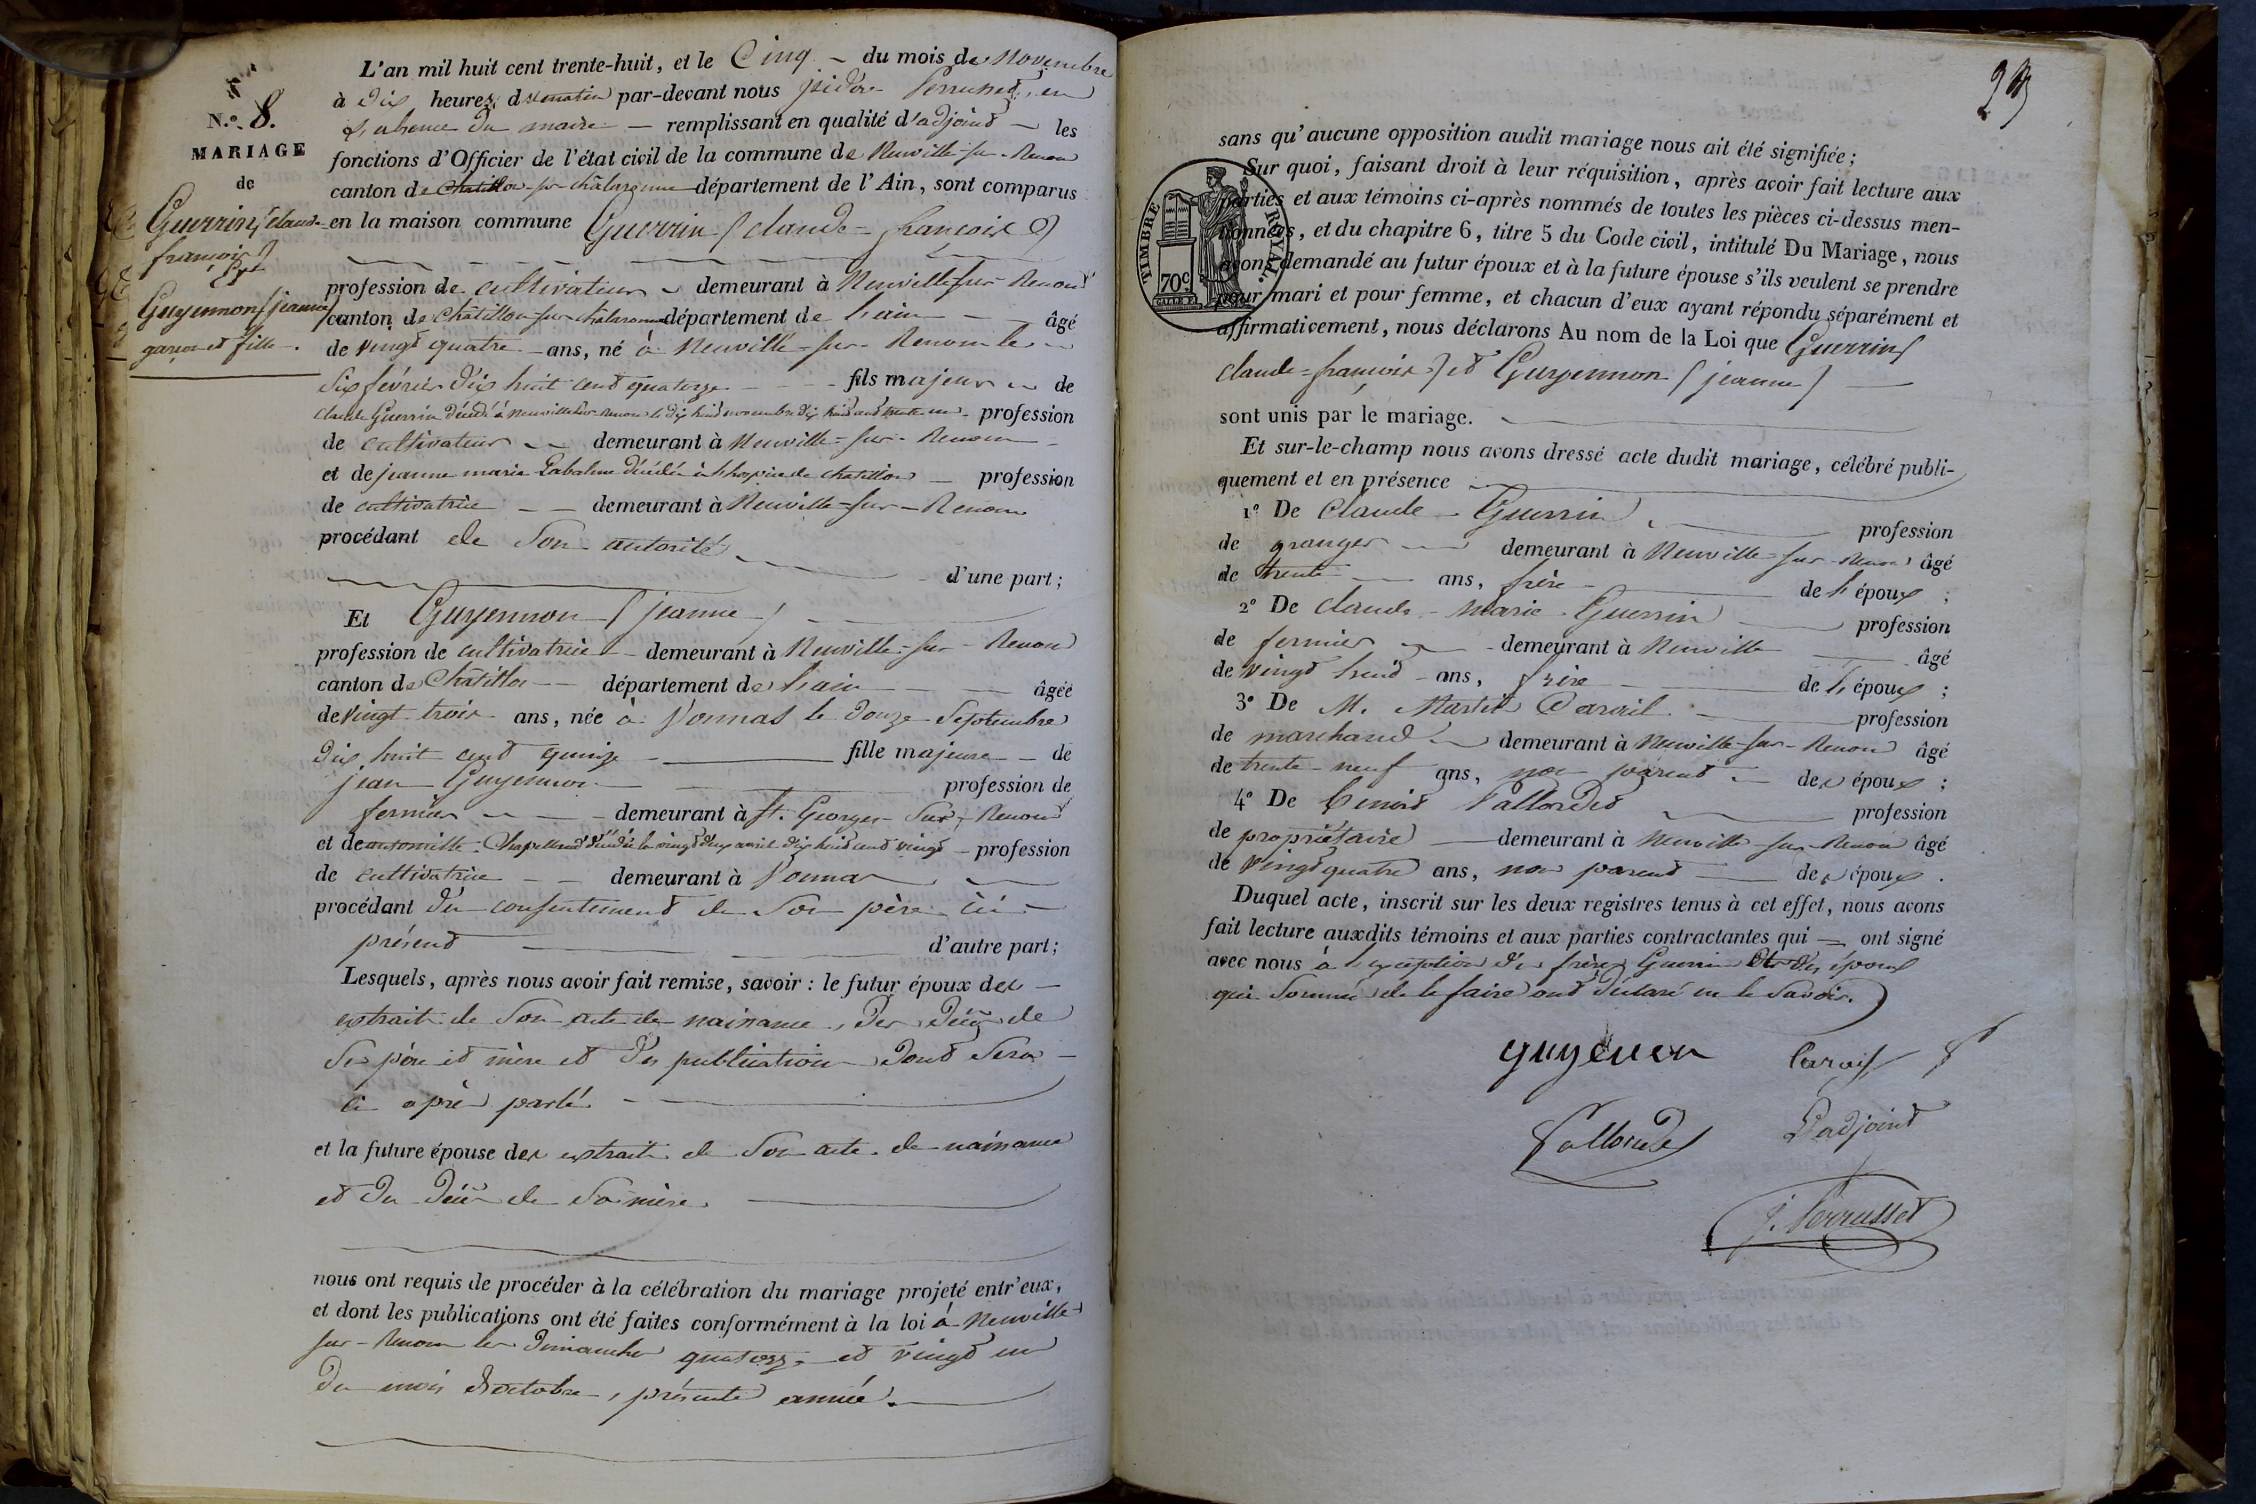 L'an mil huit cent trente-huit, et le Cinq du mois de Novembre
à dix heures du matin par-devant nous isidore Perrusset, en
l'absence du maire remplissant en qualité d'adjoint les
N.º 8.
fonctions d'Officier de l'état civil de la commune de Neuville-sur-Renom
MARIAGE
de
canton de Chatillon-sur-chalaronne département de l'Ain, sont comparus
Guerrin (claude-
françois)
et
Guyennon (jeanne)
garçon et fille.
en la maison commune Guerrin (claude-françois)
profession de cultivateur demeurant à Neuville sur Renom
canton de Chatillon-sur-chalaronne département de l'ain âgé
de vingt quatre ans, né à Neuville-sur-Renom le
six février dix huit cent quatorze fils majeur de
claude Guerrin décédé à Neuville sur Renom le dix huit novembre dix huit cent trente un profession
de cultivateur demeurant à Neuville-sur-Renom
et de jeanne marie Labalme décédée à l'hospice de chatillon profession
de cultivatrice demeurant à Neuville-sur-Renom
procédant de son autorité
d'une part;
Et Guyennon (jeanne)
profession de cultivatrice demeurant à Neuville-sur-Renom
canton de Chatillon département de l'ain âgée
de vingt trois ans, née à Vonnas le douze Septembre
dix huit cent quinze fille majeure de
jean Guyennon profession de
fermier demeurant à St. Georges-sur-Renom
et de antoinette Chapelland décédée le vingt deux avril dix huit cent vingt profession
de cultivatrice demeurant à Vonnas
procédant du consentement de son père ici
présent d'autre part;
Lesquels, après nous avoir fait remise, savoir : le futur époux des
extraits de son acte de naissance, des décès de
ses père et mère et des publications dont sera
ci après parlé
et la future épouse des extraits de son acte de naissance
et du décès de sa mère.
nous ont requis de procéder à la célébration du mariage projeté entr'eux,
et dont les publications ont été faites conformément à la loi à Neuville-
sur-Renom les dimanches quatorze et vingt un
du mois d'octobre, présente année.
sans qu'aucune opposition audit mariage nous ait été signifiée;
Sur quoi, faisant droit à leur réquisition, après avoir fait lecture aux
parties et aux témoins ci-après nommés de toutes les pièces ci-dessus men-
tionnées, et du chapitre 6, titre 5 du Code civil, intitulé Du Mariage, nous
avons demandé au futur époux et à la future épouse s'ils veulent se prendre
pour mari et pour femme, et chacun d'eux ayant répondu séparément et
affirmativement, nous déclarons Au nom de la Loi que Guerrin (
TIMBRE ROYAL
70c
claude-françois) et Guyennon (jeanne)
sont unis par le mariage.
Et sur-le-champ nous avons dressé acte dudit mariage, célébré publi-
quement et en présence
1º De Claude Guerrin profession
de granger demeurant à Neuville-sur-Renom âgé
de trente ans, frère de l'époux;
2º De claude-marie Guerrin profession
de fermier demeurant à Neuville âgé
de vingt huit ans, frère de l'époux;
3º De M. Martin profession
de marchand demeurant à Neuville-sur-Renom âgé
de trente neuf ans, non parent des époux;
4º De benoit Vallondet profession
de propriétaire demeurant à Neuville-sur-Renom âgé
de vingt quatre ans, non parent des époux.
Duquel acte, inscrit sur les deux registres tenus à cet effet, nous avons
fait lecture auxdits témoins et aux parties contractantes qui ont signé
avec nous à l'exception des frères Guerrin et des époux
qui sommés de le faire ont déclaré ne le savoir.
guyenon
L'adjoint
J. Perrusset